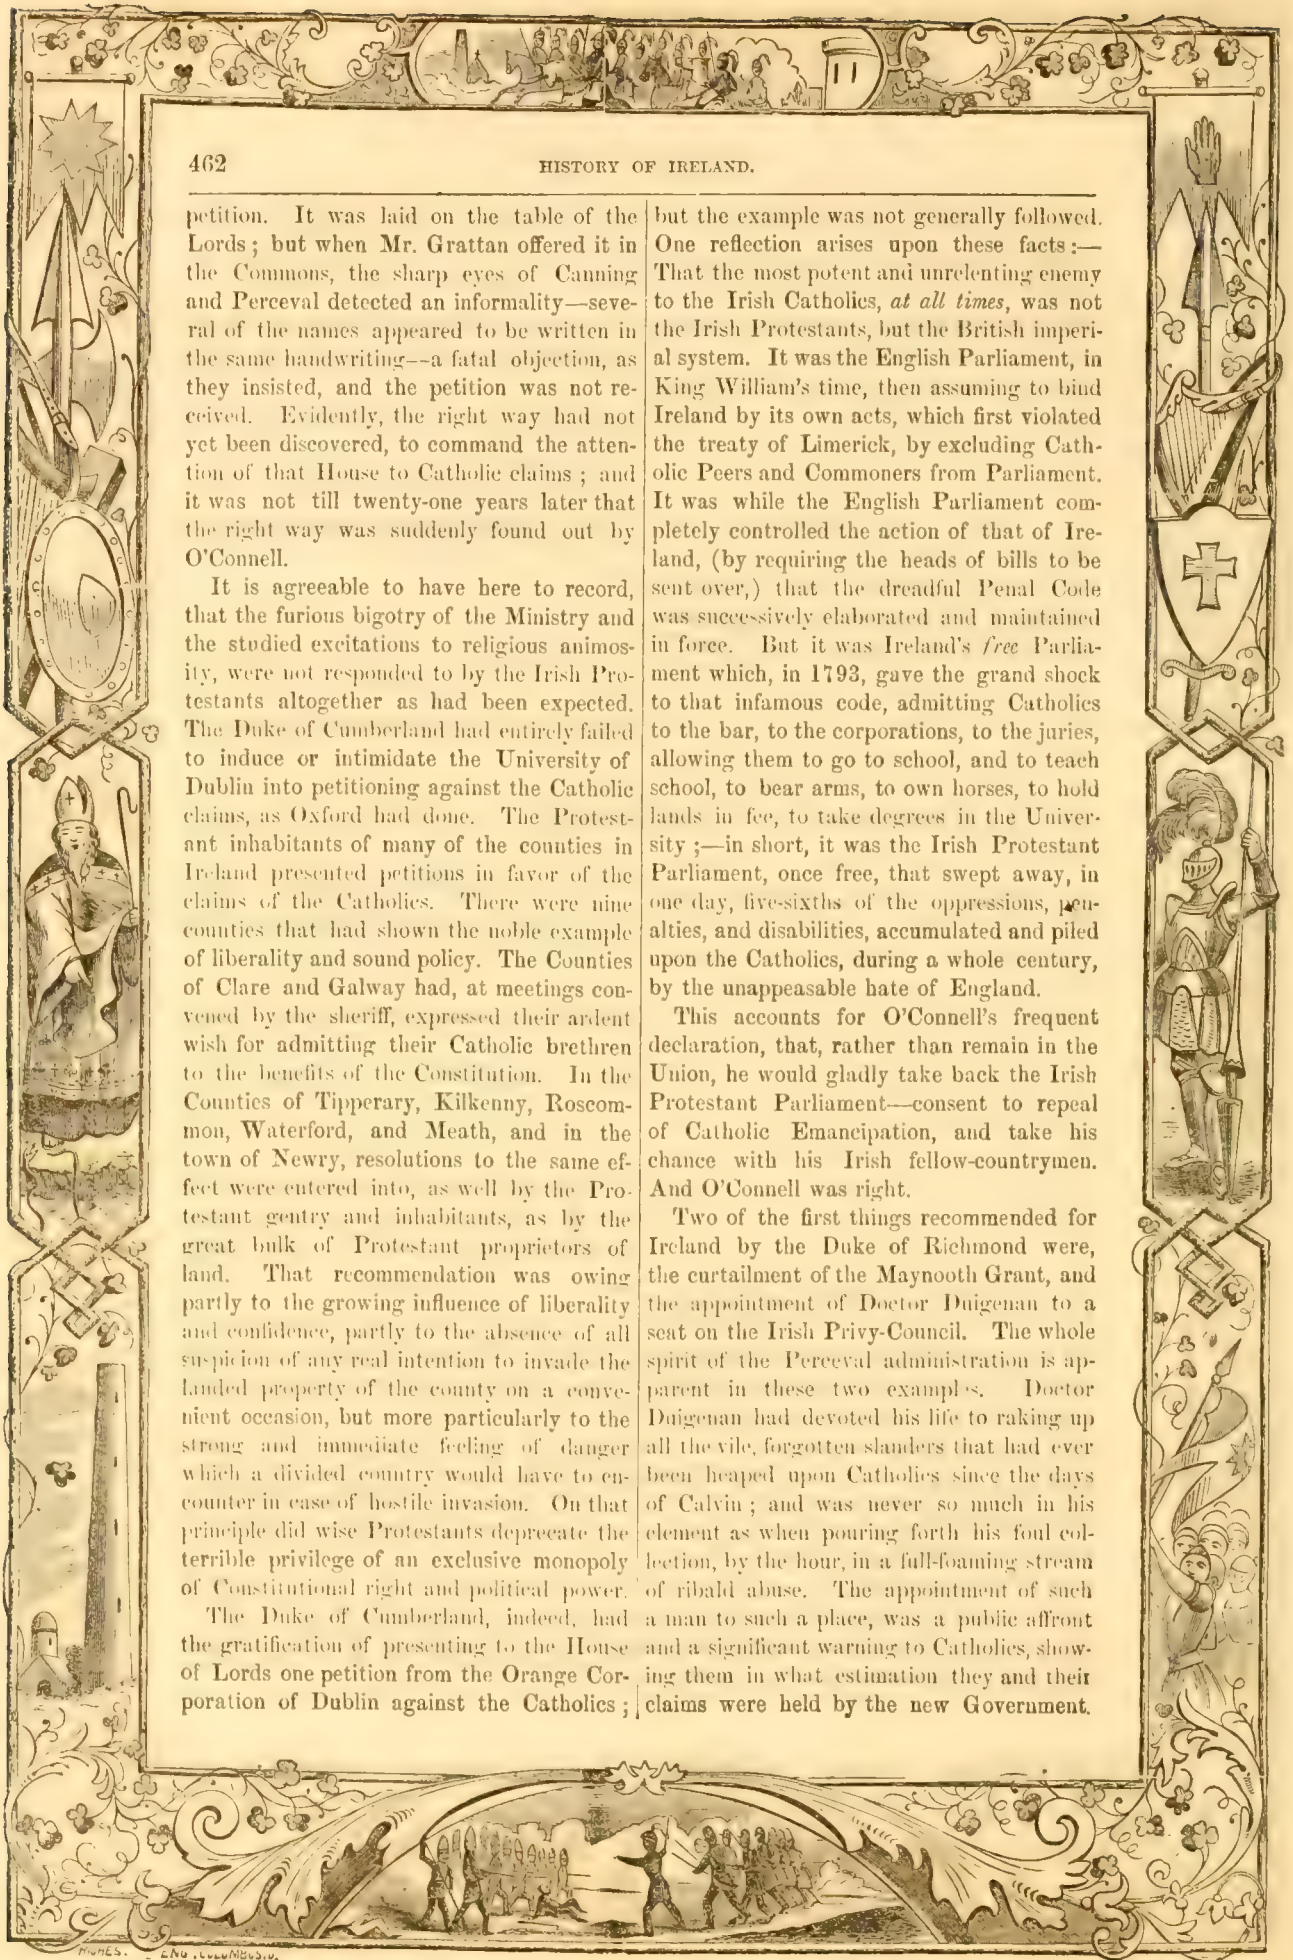 462
HISTORY OF IRELAND.
petition. It was laid on the table of the
Lords; but when Mr. Grattan offered it in
the Commons, the sharp eyes of Canning
and Perceval detected an informality—seve-
ral of the names appeared to be written in
the same handwriting—a fatal objection, as
they insisted, and the petition was not re-
ceived. Evidently, the right way had not
yet been discovered, to command the atten-
tion of that House to Catholic claims; and
it was not till twenty-one years later that
the right way was suddenly found out by
O'Connell.
It is agreeable to have here to record,
that the furious bigotry of the Ministry and
the studied excitations to religious animos-
ity, were not responded to by the Irish Pro-
testants altogether as had been expected.
The Duke of Cumberland had entirely failed
to induce or intimidate the University of
Dublin into petitioning against the Catholic
claims, as Oxford had done. The Protest-
ant inhabitants of many of the counties in
Ireland presented petitions in favor of the
claims of the Catholics. There were nine
counties that had shown the noble example
of liberality and sound policy. The Counties
of Clare and Galway had, at meetings con-
vened by the sheriff, expressed their ardent
wish for admitting their Catholic brethren
to the benefits of the Constitution. In the
Counties of Tipperary, Kilkenny, Roscom-
mon, Waterford, and Meath, and in the
town of Newry, resolutions to the same ef-
fect were entered into, as well by the Pro-
testant gentry and inhabitants, as by the
great bulk of Protestant proprietors of
land. That recommendation was owing
partly to the growing influence of liberality
and confidence, partly to the absence of all
suspicion of any real intention to invade the
landed property of the county on a conve-
nient occasion, but more particularly to the
strong and immediate feeling of danger
which a divided country would have to en-
counter in case of hostile invasion. On that
principle did wise Protestants deprecate the
terrible privilege of an exclusive monopoly
of Constitutional right and political power.
The Duke of Cumberland, indeed, had
the gratification of presenting to the House
of Lords one petition from the Orange Cor-
poration of Dublin against the Catholics;
but the example was not generally followed.
One reflection arises upon these facts:—
That the most potent and unrelenting enemy
to the Irish Catholics, at all times, was not
the Irish Protestants, but the British imperi-
al system. It was the English Parliament, in
King William's time, then assuming to bind
Ireland by its own acts, which first violated
the treaty of Limerick, by excluding Cath-
olic Peers and Commoners from Parliament.
It was while the English Parliament com-
pletely controlled the action of that of Ire-
land, (by requiring the heads of bills to be
sent over,) that the dreadful Penal Code
was successively elaborated and maintained
in force. But it was Ireland's free Parlia-
ment which, in 1793, gave the grand shock
to that infamous code, admitting Catholics
to the bar, to the corporations, to the juries,
allowing them to go to school, and to teach
school, to bear arms, to own horses, to hold
lands in fee, to take degrees in the Univer-
sity;—in short, it was the Irish Protestant
Parliament, once free, that swept away, in
one day, five-sixths of the oppressions, pen-
alties, and disabilities, accumulated and piled
upon the Catholics, during a whole century,
by the unappeasable hate of England.
This accounts for O'Connell's frequent
declaration, that, rather than remain in the
Union, he would gladly take back the Irish
Protestant Parliament—consent to repeal
of Catholic Emancipation, and take his
chance with his Irish fellow-countrymen.
And O'Connell was right.
Two of the first things recommended for
Ireland by the Duke of Richmond were,
the curtailment of the Maynooth Grant, and
the appointment of Doctor Duigenan to a
seat on the Irish Privy-Council. The whole
spirit of the Perceval administration is ap-
parent in these two examples. Doctor
Duigenan had devoted his life to raking up
all the vile, forgotten slanders that had ever
been heaped upon Catholics since the days
of Calvin; and was never so much in his
element as when pouring forth his foul col-
lection, by the hour, in a full-foaming stream
of ribald abuse. The appointment of such
a man to such a place, was a public affront
and a significant warning to Catholics, show-
ing them in what estimation they and their
claims were held by the new Government.
ENG. COLUMBUS, O.